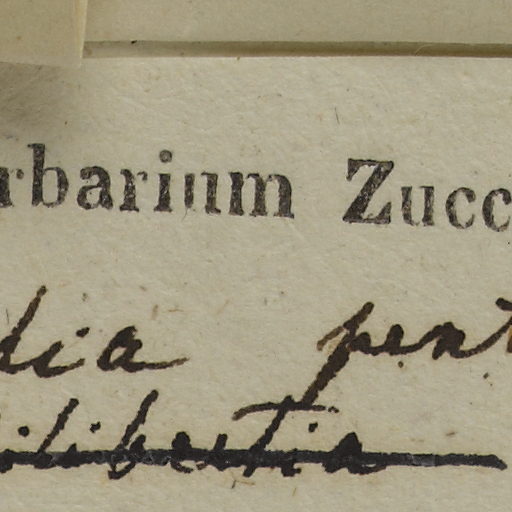 rbarium Zucc
dia pent
ilibertia